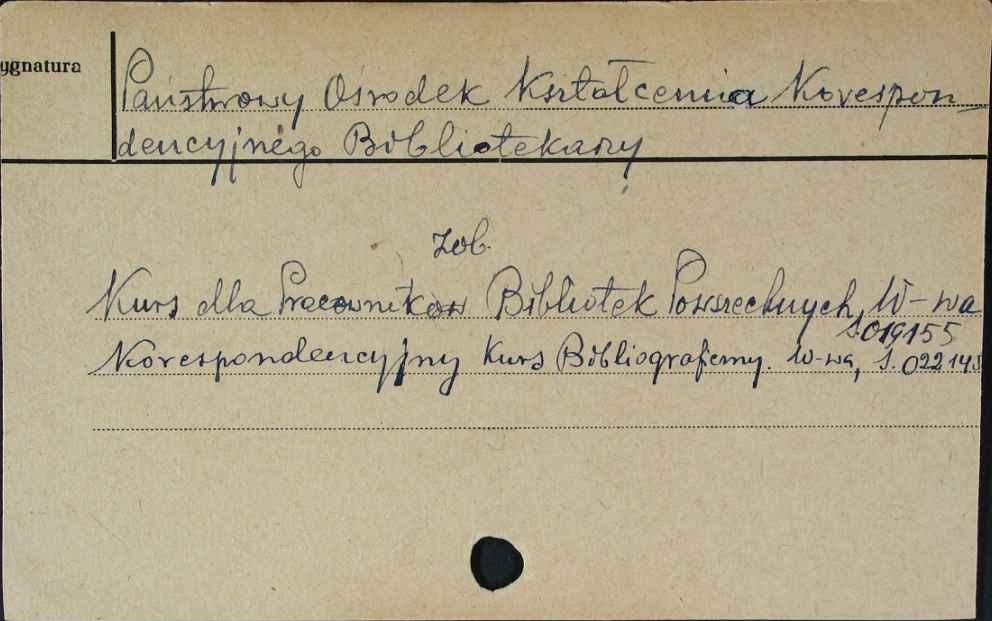 ygnatura
Państwowy Ośrodek Kształcenia Korespon-
dencyjnego Bibliotekarzy
zob.
Kurs dla Pracowników Bibliotek Powszechnych, W-wa
S.019155
Korespondencyjny Kurs Bibliograficzny. W-wa, S.022145